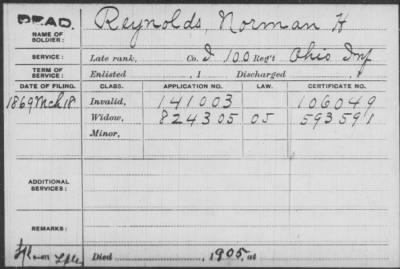 DEAD.
NAME OF SOLDIER: Reynolds, Norman H
SERVICE: Late rank, Co. I 100 Reg't Ohio Inf
TERM OF SERVICE: Enlisted , 1 Discharged , 1
DATE OF FILING. CLASS. APPLICATION NO. LAW. CERTIFICATE NO.
1869 Mch 18 Invalid, 141003 106049
Widow, 824305 05 593591
Minor,
ADDITIONAL SERVICES:
REMARKS:
Died 1905, at